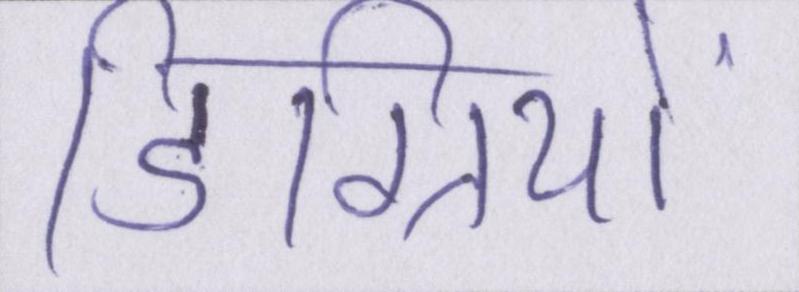 डिग्रियों